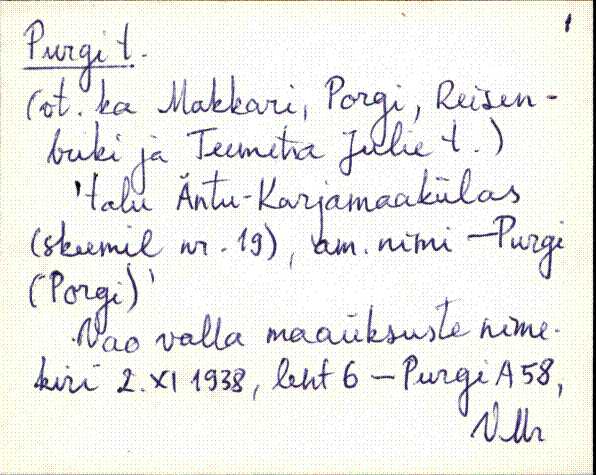 1
Purgi t.
(vt. ka Makkari, Porgi, Reisen-
buki ja Teemetsa Julie t.)
'talu Äntu-Karjamaakülas
(skeemil nr. 19), am. nimi – Purgi
(Porgi)'
Vao valla maaüksuste nime-
kiri 2.XI 1938, leht 6 – Purgi A 58,
VMr